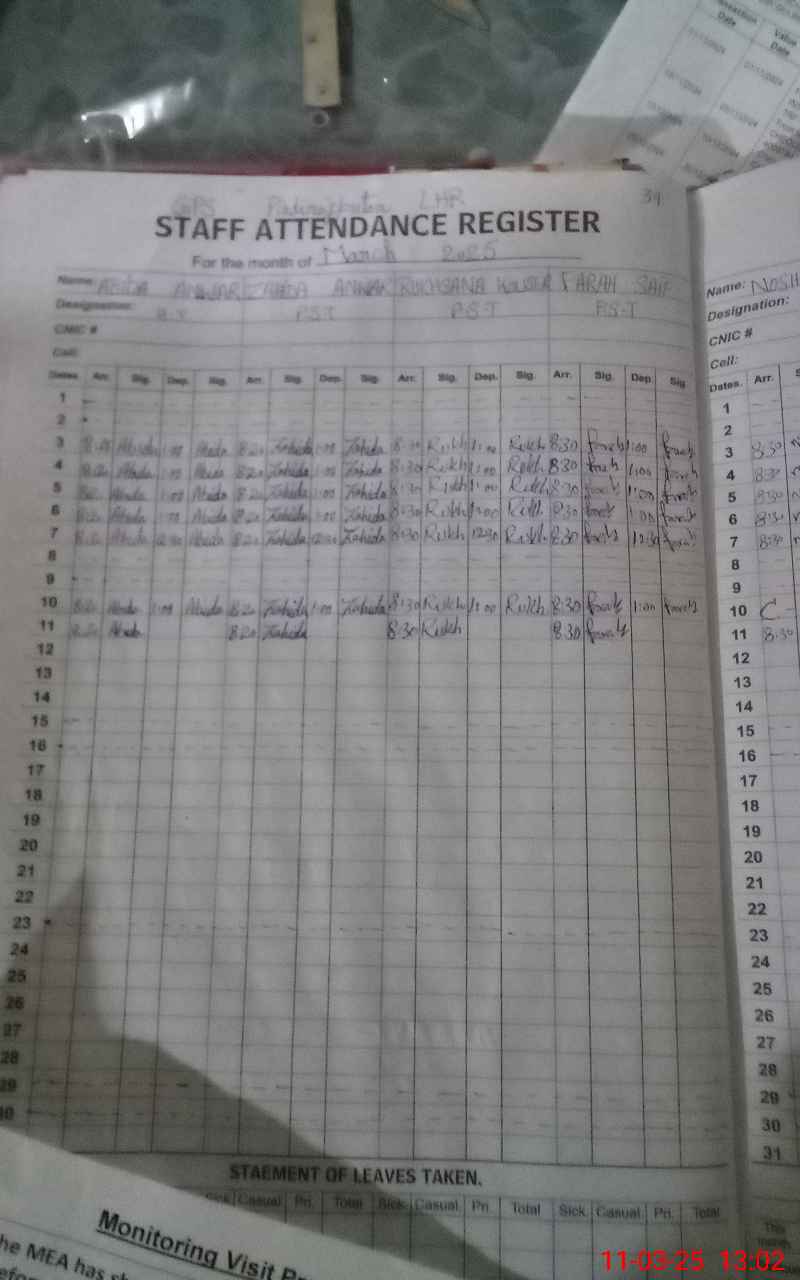 39
GPS LHR
STAFF ATTENDANCE REGISTER
For the month of March 2025
Name: ABIDA ANWAR ZAHIDA ANWAR RUKHSANA KOUSER FARAH SAIF
Designation: P.S.T P.S.T P.S.T
CNIC #
Cell:
Dates Arr. Sig. Dep. Sig. Arr. Sig. Dep. Sig. Arr. Sig. Dep. Sig. Arr. Sig. Dep. Sig
1
2
3 8:20 Abida 1:00 Abida 8:20 Zahida 1:00 Zahida 8:30 Rukh 1:00 Rukh 8:30 farah 1:00 farah
4 8:20 Abida 1:00 Abida 8:20 Zahida 1:00 Zahida 8:30 Rukh 1:00 Rukh 8:30 farah 1:00 farah
5 8:20 Abida 1:00 Abida 8:20 Zahida 1:00 Zahida 8:30 Rukh 1:00 Rukh 8:30 farah 1:00 farah
6 8:20 Abida 1:00 Abida 8:20 Zahida 1:00 Zahida 8:30 Rukh 1:00 Rukh 8:30 farah 1:00 farah
7 8:20 Abida 12:30 Abida 8:20 Zahida 12:30 Zahida 8:30 Rukh 12:30 Rukh 8:30 farah 12:30 farah
8
9
10 8:20 Abida 1:00 Abida 8:20 Zahida 1:00 Zahida 8:30 Rukh 1:00 Rukh 8:30 farah 1:00 farah
11 8:20 Abida 8:20 Zahida 8:30 Rukh 8:30 farah
12
13
14
15
16
17
18
19
20
21
22
23
24
25
26
27
28
29
30
STAEMENT OF LEAVES TAKEN.
Sick Casual Pri. Total Sick. Casual. Pri. Total Sick. Casual. Pri. Total
Name: NOSH
Designation:
CNIC #
Cell:
Dates. Arr. S
1
2
3 8:30
4 8:30
5 8:30
6 8:30
7 8:30
8
9
10 C
11 8:30
12
13
14
15
16
17
18
19
20
21
22
23
24
25
26
27
28
29
30
31
This
month
Monitoring Visit
he MEA has
Transaction Date Value Date
11-03-25 13:02